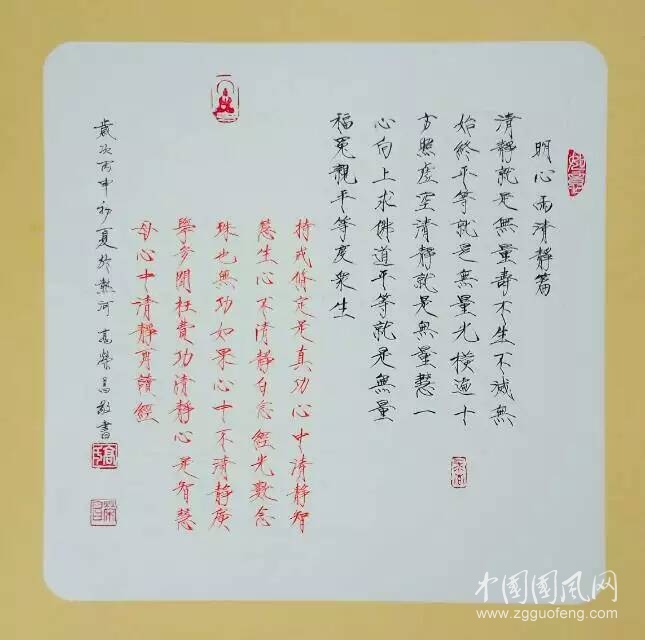 明心雨清靜篇
清靜就是無量壽不生不滅無
始終平等就是無量光橫遍十
方照虛空清靜就是無量慧一
心向上求佛道平等就是無量
福冤親平等度眾生
持戒修定是真功心中清靜智
慧生心不清靜白念經光數念
珠也無功如果心中不清靜廣
學多聞枉費功清靜心是智慧
母心中清靜再讀經
歲次丙申初夏於熱河 高榮昌敬書
中国國风网
www.zgguofeng.com